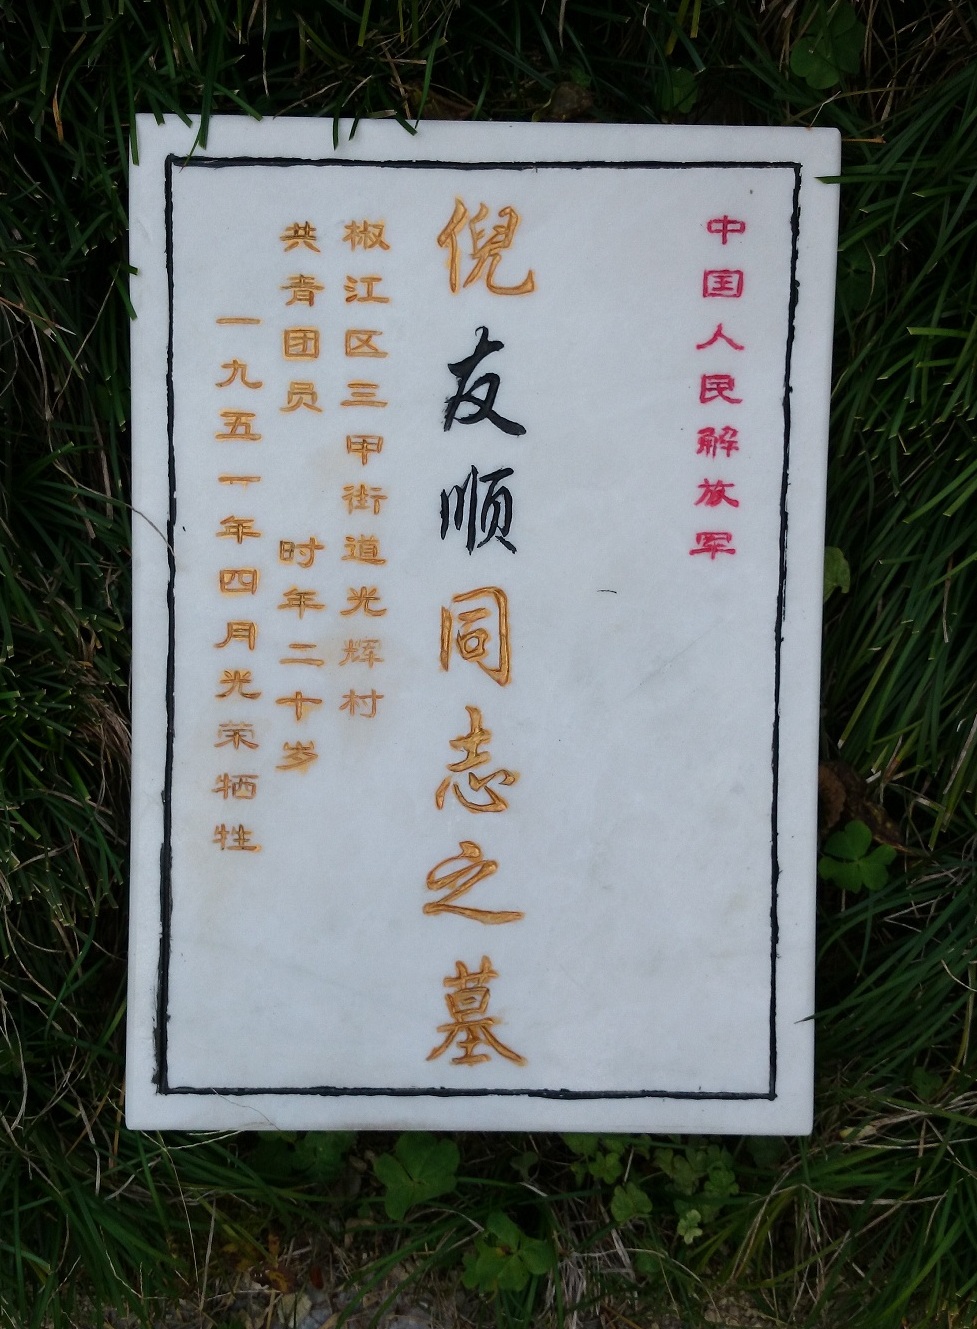 中国人民解放军
倪友顺同志之墓
椒江区三甲街道光辉村
共青团员 时年二十岁
一九五一年四月光荣牺牲